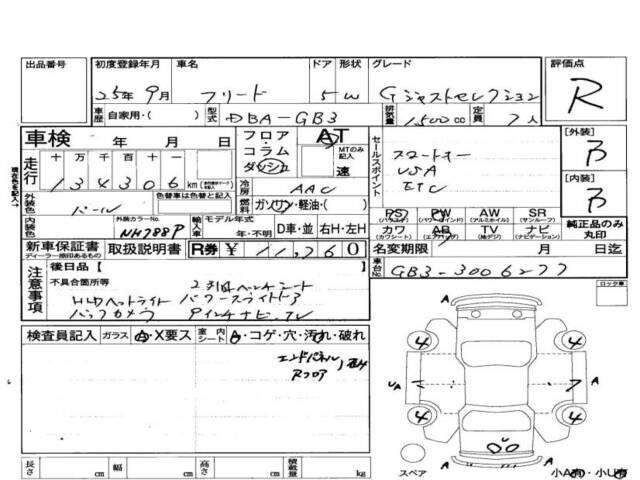 出品番号
初度登録年月
25年9月
車名
フリード
ドア 形状
5 W
グレード
Gジャストセレクション
評価点
R
車歴 自家用・( )
型式
DBA-GB3
排気量 1500cc
定員 7人
車検 年 月 日
フロア
コラム
ダッシュ
AT
MTのみ記入
速
セールスポイント
スマートキー
USA
ETC
[外装]
B
[内装]
B
走行
十 万 千 百 十 一
134306km
冷房 AAC
燃料 ガソリン・軽油・( )
外装色 パール
色替車は色替と記入
内装色
外装カラーNo.
NH788P
輸入車
モデル年式
年・不明
D車・並 右H・左H
PS (パワステ)
PW (パワーウインド)
AW (アルミホイル)
SR (サンルーフ)
カワ (カワシート)
AB (エアバッグ)
TV (地デジ)
ナビ (ナビゲーション)
純正品のみ丸印
新車保証書
ディーラー捺印あるもの
取扱説明書
R券 ¥ 11,760
名変期限 月 日迄
車台No.
GB3-3006277
注意事項
後日品【
不具合箇所等
2列目ベンチシート
HIDヘットライト パワースライドドア
バックカメラ
ナビ、TV
ロック車
検査員記入
ガラス A・X要ス
室内シート A・コゲ・穴・汚れ・破れ
エンドパネル
Rフロア
4 4
A
UA
A
4 4
U
A
スペア
小A有・小U有
長さ cm
幅 cm
高さ cm
積載量 kg